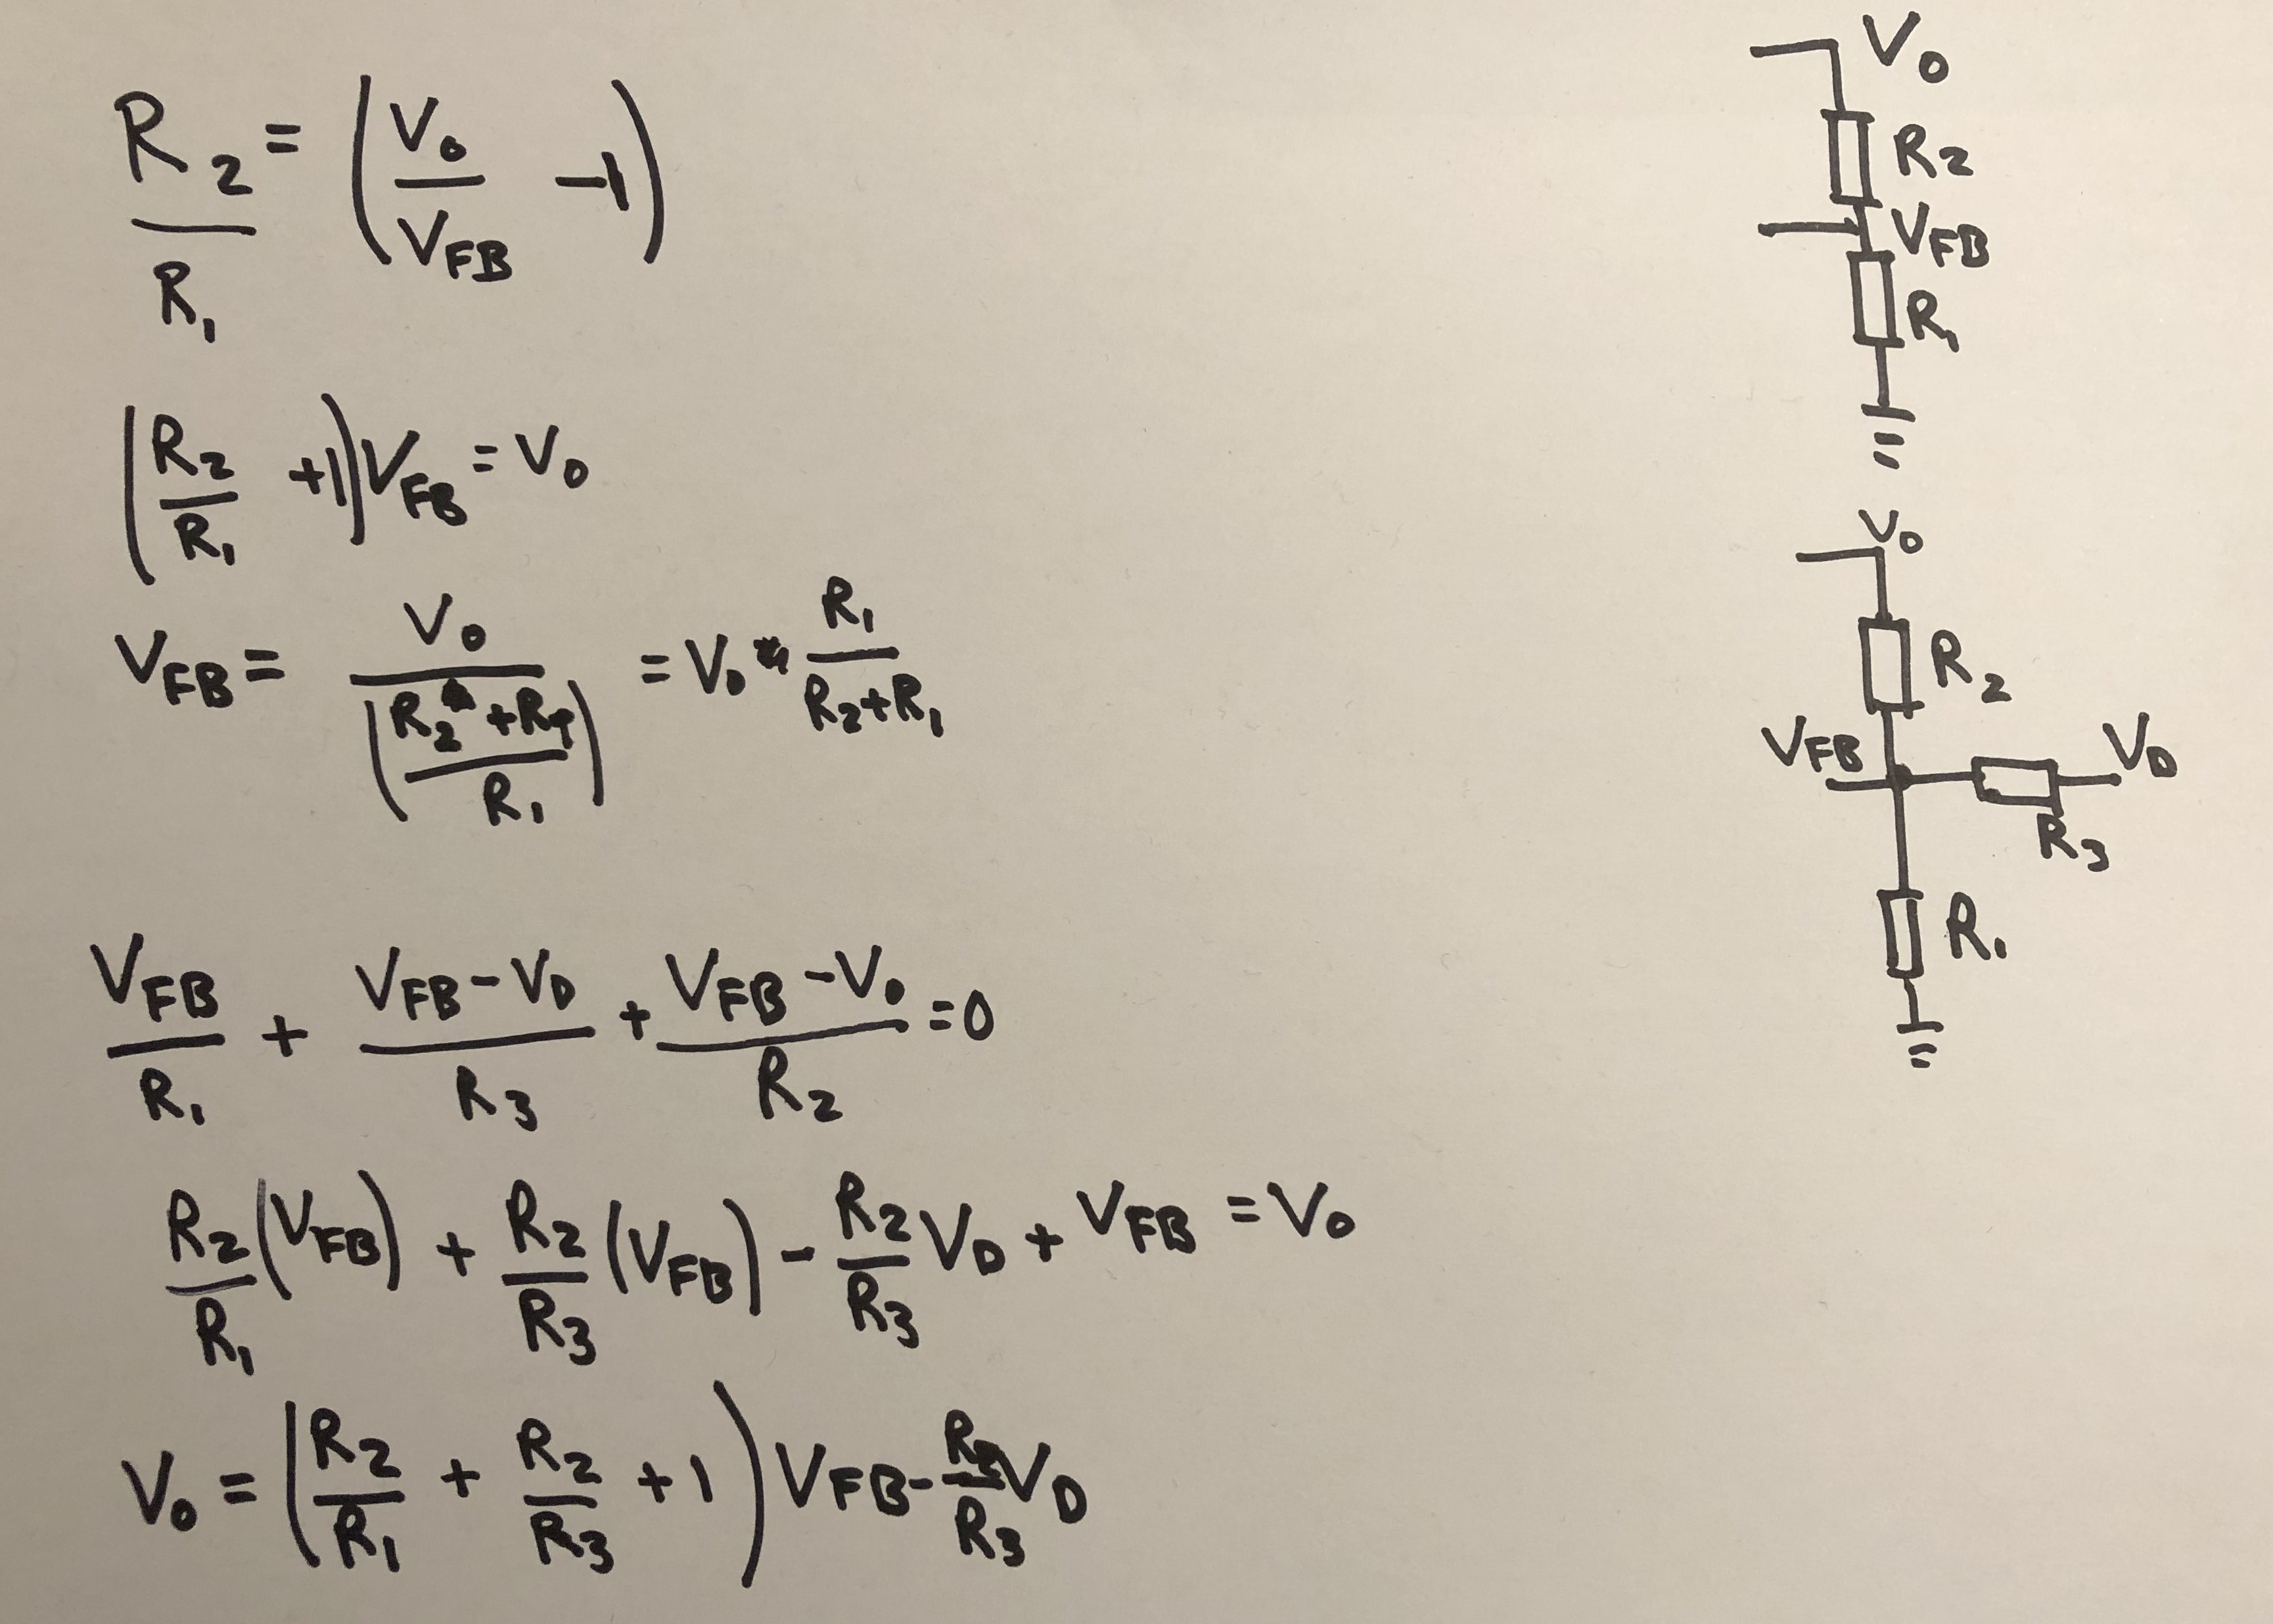 R₂/R₁ = (V₀/V_FB -1)
(R₂/R₁ +1)V_FB = V₀
V_FB = V₀/((R₂+R₁)/R₁) = V₀ * R₁/(R₂+R₁)
V_FB/R₁ + (V_FB-V_D)/R₃ + (V_FB-V₀)/R₂ =0
R₂/R₁(V_FB) + R₂/R₃(V_FB) - R₂/R₃ V_D + V_FB = V₀
V₀ = (R₂/R₁ + R₂/R₃ +1)V_FB - R₂/R₃ V_D
V₀
R₂
V_FB
R₁
V₀
R₂
V_FB
V_D
R₃
R₁